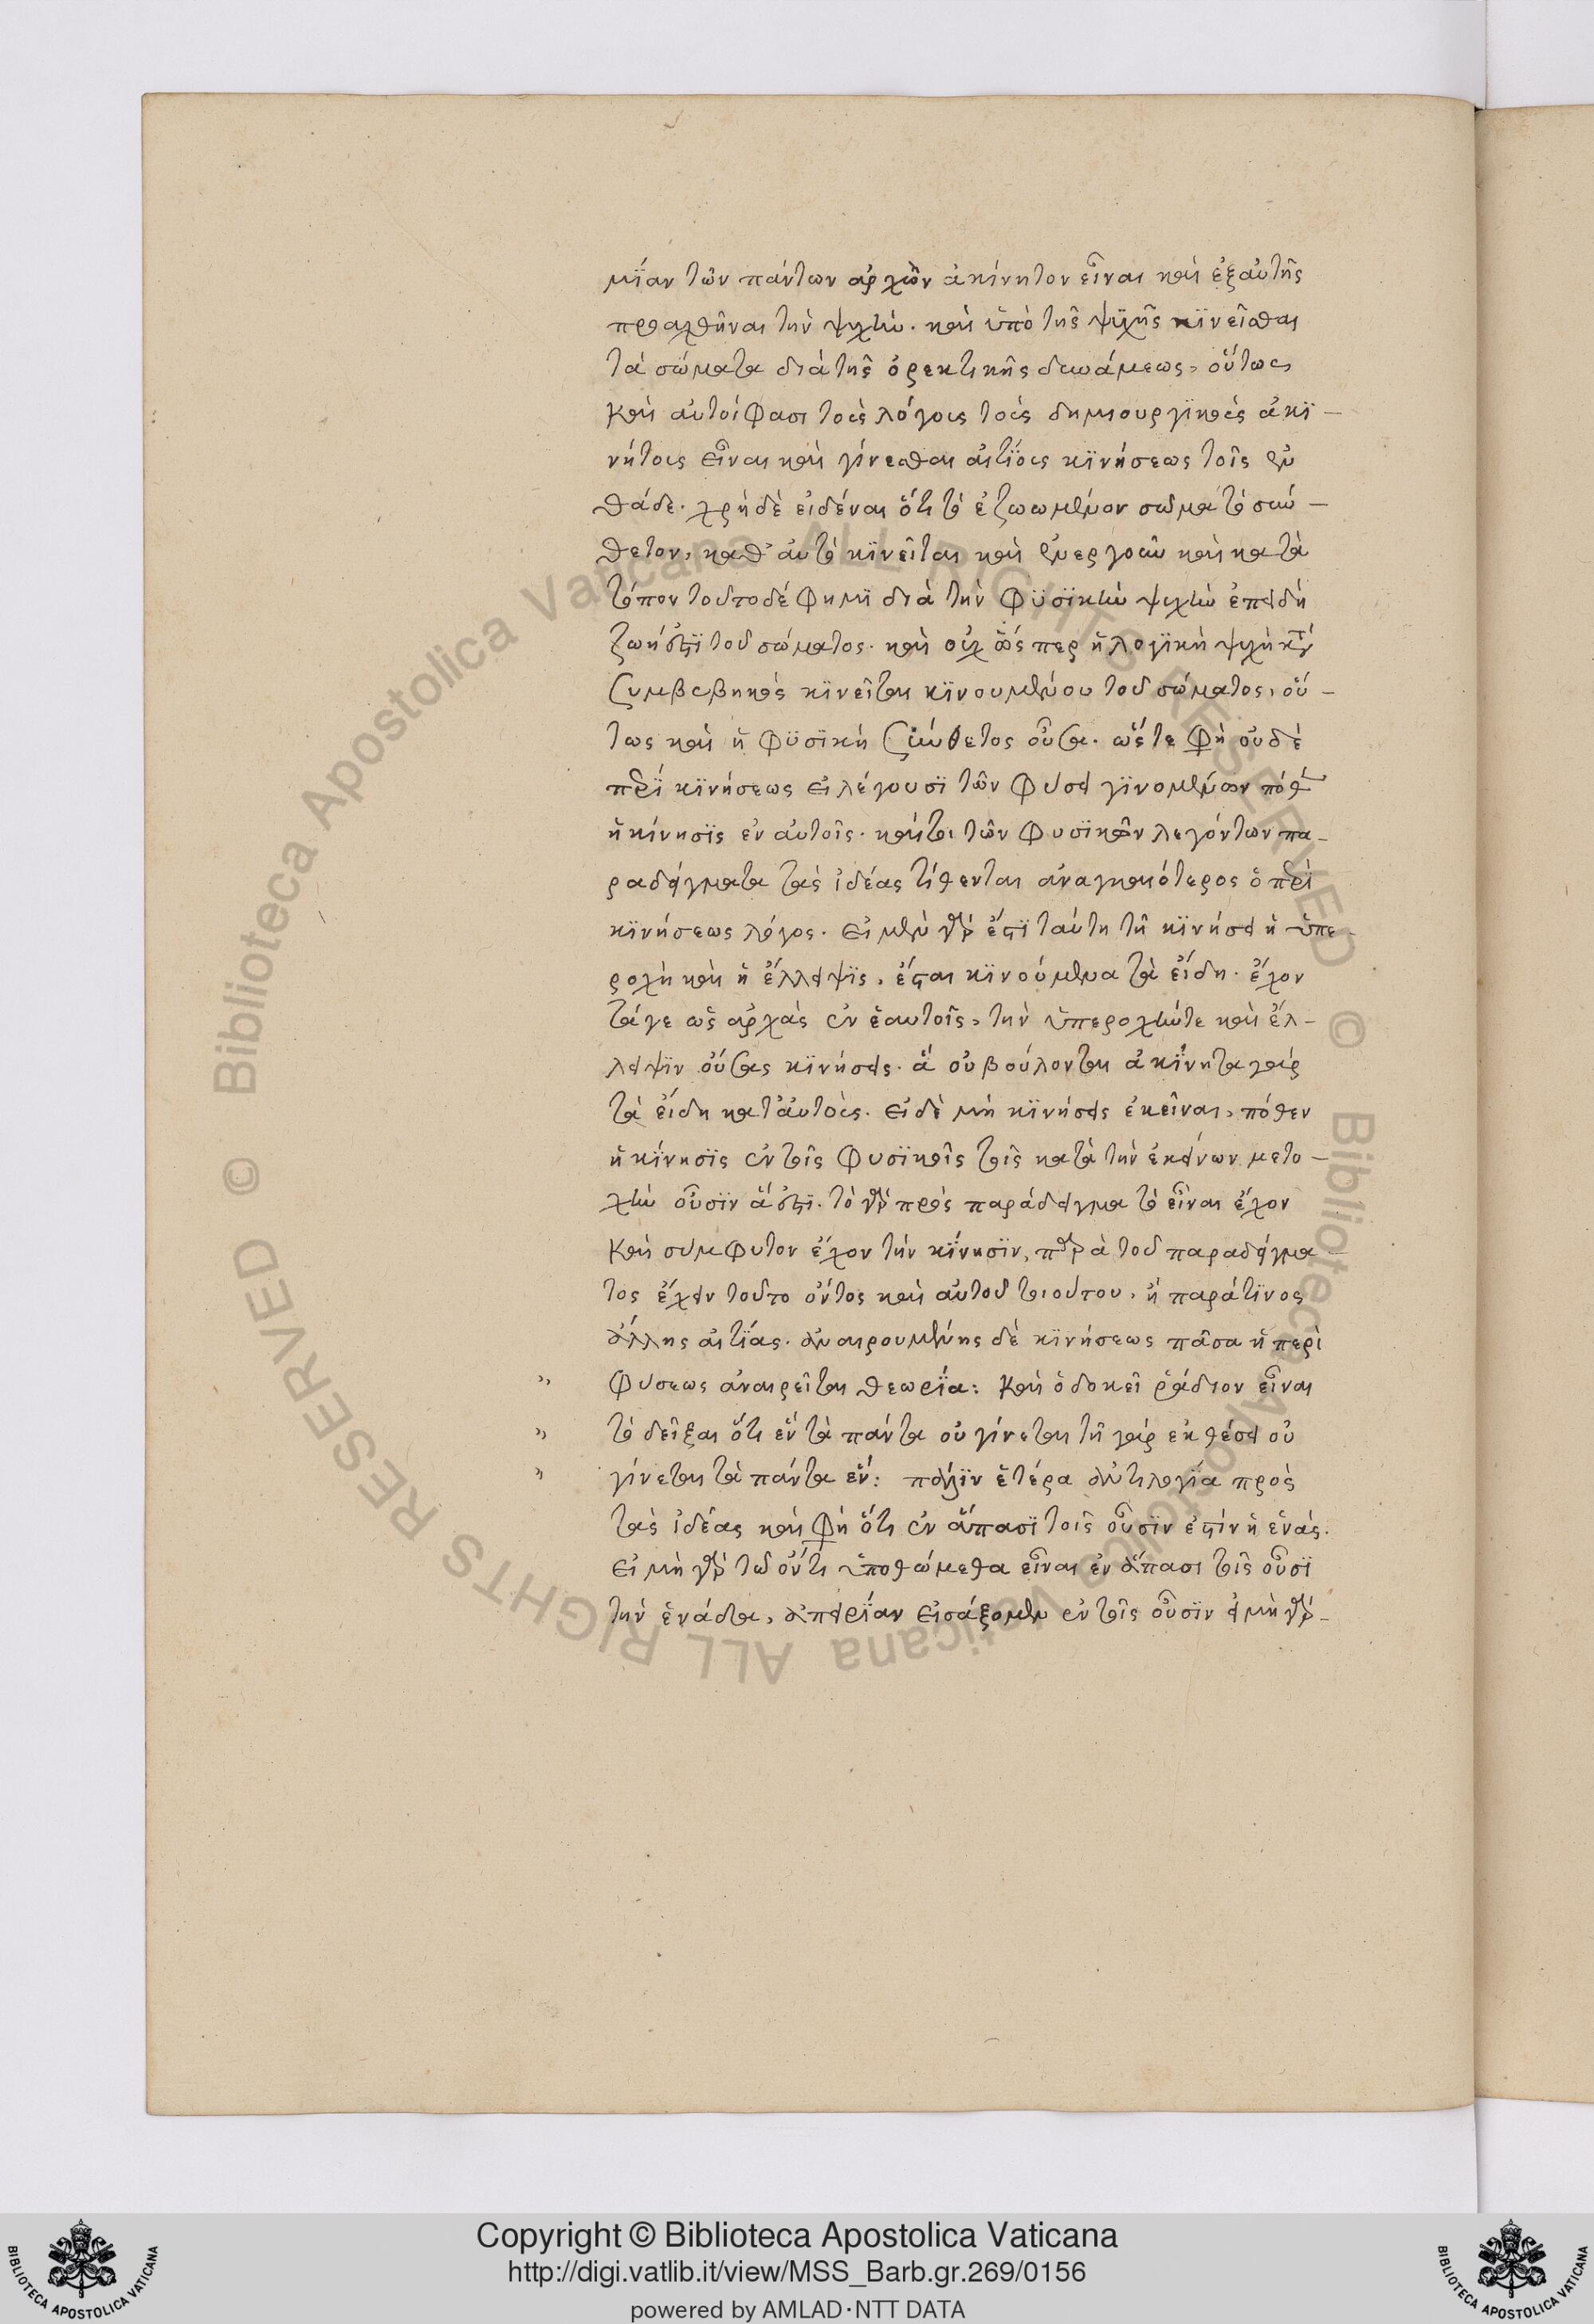 μίαν τῶν πάντων ἀρχὼν ἀκίνητον εἶναι καὶ ἐξαὐτῆς
προαχθῆναι τὴν ψυχὴν. καὶ ὑπὸ τῆς ψϋχῆς κϊνεῖσθαι
τὰ σώματα διὰ τῆς ὀρεκτικῆς δυνάμεως, οὕτως
καὶ αὐτοί φασι τοὺς λόγους τοὺς δημιουργϊκοὺς ἀκϊ-
νήτους εἶναι καὶ γίνεσθαι αἰτϊους κϊνήσεως τοῖς ἐν
θάδε. χρὴ δὲ εἰδέναι ὅτι τὸ ἐζωωμένον σῶμα τὸ σύν-
θετον, καθ' αὑτὸ κϊνεῖται καὶ ἐνεργοῦν καὶ κατὰ
τόπον τοῦτο δέ φημϊ διὰ τὴν φϋσϊκὴν ψυχὴν ἐπειδὴ
ζωή ἐστϊ τοῦ σώματος. καὶ οὐχ ὥς περ ἡ λογϊκὴ ψυχὴ κατὰ
συμβεβηκὸς κϊνεῖται κϊνουμένου τοῦ σώματος, οὕ-
τως καὶ ἡ φϋσϊκὴ σύνθετος οὖσα. ὥς τε φὴ οὐδὲ
περὶ κϊνήσεως εἰ λέγουσϊ τῶν φύσει γϊνομένων πόθεν
ἡ κίνησϊς ἐν αὐτοῖς. καίτοι τῶν φυσϊκῶν λεγόντων πα-
ραδείγματα τὰς ἰδέας τίθενται ἀναγκαιότερος ὁ περὶ
κϊνήσεως λόγος. εἰ μὲν γὰρ ἔστϊ ταύτη τῆ κϊνήσει ἡ ὑπε-
ροχὴ καὶ ἡ ἔλλειψϊς, ἔσται κϊνούμενα τὰ εἴδη. ἔχον
τά γε ὡς ἀρχὰς ἐν ἑαυτοῖς, τὴν ὑπεροχήν τε καὶ ἔλ-
λειψϊν οὔσας κϊνήσεις. ἃ οὐ βούλονται ἀκϊνητα γὰρ
τὰ εἴδη κατ'αὐτοὺς. εἰ δὲ μὴ κϊνήσεις ἐκεῖναι, πόθεν
ἡ κϊνησϊς ἐν τοῖς φυσϊκοῖς τοῖς κατὰ τὴν ἐκείνων μετο-
χὴν οὖσϊν ἅ ἐστϊ. τὸ γὰρ πρὸς παράδειγμα τὸ εἶναι ἔχον
καὶ σύμφυτον ἔχον τὴν κϊνησϊν, παρὰ τοῦ παραδείγμα
τος ἔχειν τοῦτο ὄντος καὶ αὐτοῦ τοιούτου, ἢ παράτϊνος
ἄλλης αἰτϊας. ἀναιρουμένης δὲ κϊνήσεως πᾶσα ἡ περὶ
" φύσεως ἀναιρεῖται θεωρϊα: καὶ ὃ δοκεῖ ῥάδιον εἶναι
" τὸ δεῖξαι ὅτι ἓν τὰ πάντα οὐ γίνεται τῆ γὰρ ἐκθέσει οὐ
" γίνεται τὰ πάντα ἕν: πάλϊν ἑτέρα ἀντιλογϊα πρὸς
τὰς ἰδέας καὶ φὴ ὅτι ἐν ἅπασϊ τοῖς οὖσϊν ἐστίν ἡ ἑνάς.
εἰ μὴ γὰρ τῶ ὄντι ὑποθώμεθα εἶναι ἐν ἅπασι τοῖς οὖσϊ
τὴν ἑνάδα, ἀπειρϊαν εἰσάξομεν ἐν τοῖς οὖσϊν εἰ μὴ γὰρ-
Copyright © Biblioteca Apostolica Vaticana
http://digi.vatlib.it/view/MSS_Barb.gr.269/0156
powered by AMLAD·NTT DATA
BIBLIOTECA APOSTOLICA VATICANA
BIBLIOTECA APOSTOLICA VATICANA
© Biblioteca Apostolica Vaticana ALL RIGHTS RESERVED
© Biblioteca Apostolica Vaticana ALL RIGHTS RESERVED